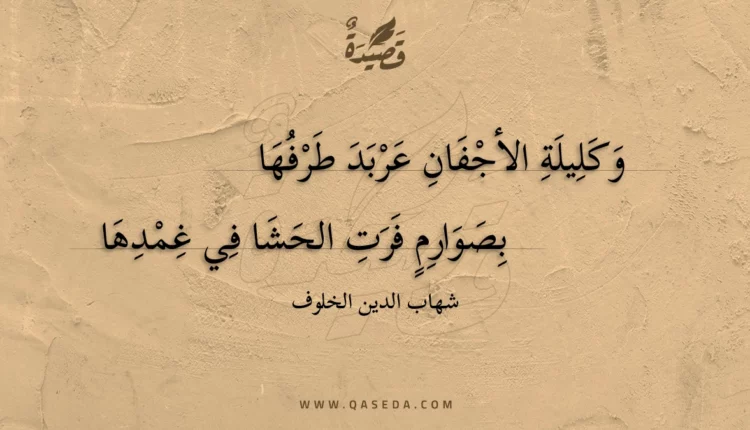 قَصِيدَةٌ
وَكَلِيلَةِ الأجْفَانِ عَرْبَدَ طَرْفُهَا
بِصَوَارِمٍ فَرَتِ الحَشَا فِي غِمْدِهَا
شهاب الدين الخلوف
WWW.QASEDA.COM